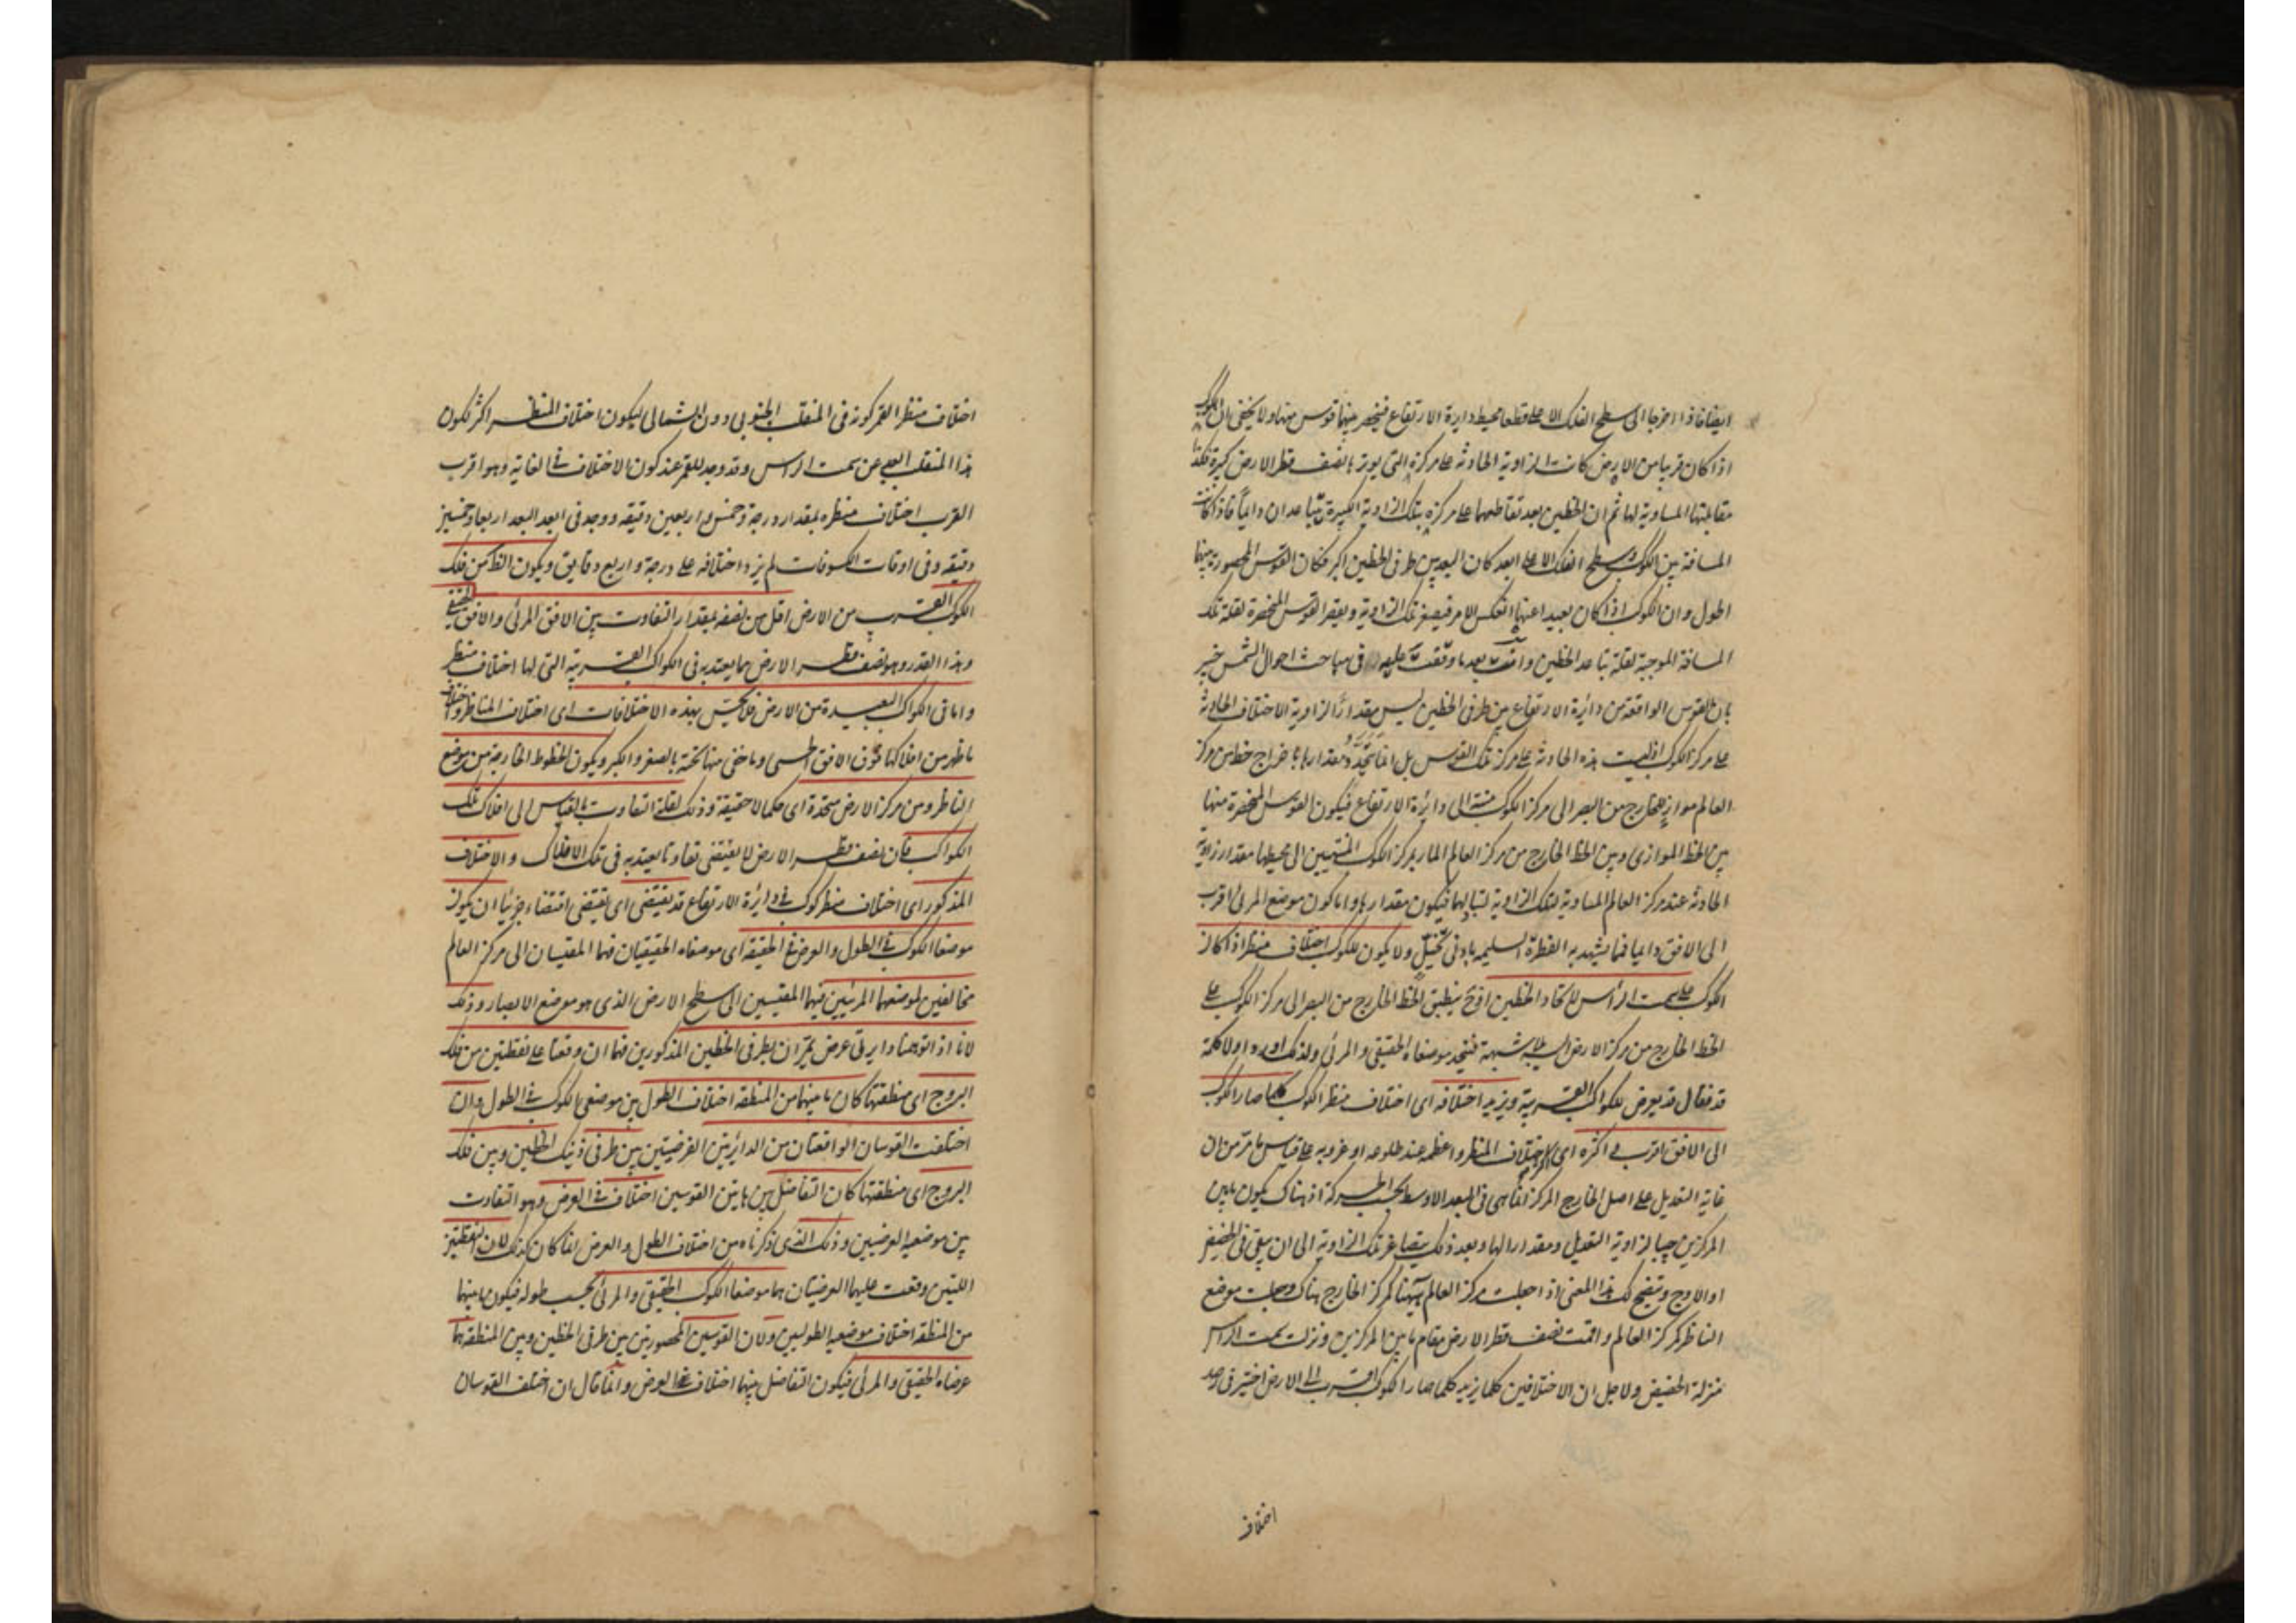 ايضا فاذا اخرجا الى سطح الفلك الاعلى قطعا محيط دايرة الارتفاع فينحصر بينهما قوس منها ولا يخفى ان الكوكب
اذا كان قريبا من الارض كانت الزاوية الحادثة على مركزه التى يوترها نصف قطر الارض كبيرة فكذا
مقابلتها المساوية لها ثم ان الخطين بعد تقاطعهما على مركزه بتلك الزاوية الكبيرة يتباعدان دائما فاذا كانت
المسافة بين الكوكب وسطح الفلك الاعلى ابعد كان البعد بين طرفى الخطين اكبر فكان القوس المحصورة بينهما
اطول وان الكوكب اذا كان بعيدا عنها انعكس الامر فيصغر تلك الزاوية ويقصر القوس المنحصرة لقلة تلك
المسافة الموجبة لقلة تباعد الخطين وانت بعد ما وقفت عليه فى مباحث احوال الشمس خبير
بان القوس الواقعة من دائرة الارتفاع بين طرفى الخطين ليس مقدارا لزاوية الاختلاف الحادثة
على مركز الكوكب اذ ليست هذه الحادثة على مركز تلك القوس بل انما يتحدد مقدارها باخراج خط من مركز
العالم مواز للخارج من البصر الى مركز الكوكب منته الى دائرة الارتفاع فيكون القوس المنحصرة منها
بين الخط الموازى وبين الخط الخارج من مركز العالم المار بمركز الكوكب المنتهيين الى محيطها مقدار زاوية
الحادثة عند مركز العالم المساوية لتلك الزاوية لتبادلهما فيكون مقدارها واما كون موضع المرئى اقرب
الى الافق دائما فمما يشهد به الفطرة السليمه بادنى تخيل ولا يكون للكوكب اختلاف منظر اذا كان
الكوكب على سمت الرأس لاتحاد الخطين اذ ح ينطبق الخط الخارج من البصر الى مركز الكوكب على
الخط الخارج من مركز الارض اليه بلا شبهة فيتحد موضعاه الحقيقى والمرئى ولذلك اورد اولا كلمة
قد فقال قد يعرض للكواكب القريبة ويزيد اختلافه اى اختلاف منظر الكوكب كلما صار الكوكب
الى الافق اقرب واكثره اى اكثر اختلاف المنظر واعظمه عند طلوعه او غروبه على قياس ما مر من ان
غاية التعديل على اصل الخارج المركز انما هى فى البعد الاوسط بحسب الحركة اذ هناك يكون ما بين
المركزين جيبا لزاوية التعديل ومقدارا لها وبعد ذلك يتصاغر تلك الزاوية الى ان يبقى فى الحضيض
او الاوج ويتضح لك هذا المعنى اذا جعلت مركز العالم ههنا كمركز الخارج هناك وجعلت موضع
الناظر كمركز العالم واقمت نصف قطر الارض مقام ما بين المركزين ونزلت سمت الراس
منزلة الحضيض ولاجل ان الاختلافين كلما يزيد كلما صار الكوكب اقرب الى الارض اختير فى رصد
اختلاف
اختلاف منظر القمر كونه فى المنقلب الجنوبى دون الشمالى ليكون اختلاف المنظر اكثر لكون
هذا المنقلب ابعد عن سمت الراس وقد وجد للقمر عند كون الاختلاف فى الغاية وهو اقرب
القرب اختلاف منظره بمقدار درجة وخمس واربعين دقيقه ووجد فى ابعد البعد اربعا وخمسين
دقيقه وفى اوقات الكسوفات لم يزد اختلافه على درجة واربع دقايق ويكون الظاهر من فلك
الكوكب القريب من الارض اقل من نصفه بمقدار التفاوت بين الافق المرئى والافق الحقيقى
وهذا القدر وهو نصف قطر الارض مما يعتد به فى الكواكب القريبة التى لها اختلاف منظر
واما فى الكواكب البعيدة من الارض فلا يحس بهذه الاختلافات اى اختلاف المناظر واختلاف
ما ظهر من افلاكها فوق الافق الحسى وما خفى منها تحته بالصغر والكبر ويكون الخطوط الخارجة من موضع
الناظر ومن مركز الارض متحدة اى حكما لا حقيقة وذلك لقلة التفاوت بالقياس الى افلاك تلك
الكواكب فان نصف قطر الارض لا يقتضى تفاوتا يعتد به فى تلك الافلاك والاختلاف
المذكور اى اختلاف منظر كوكب فى دائرة الارتفاع قد يقتضى اى يقتضى اقتضاء جزئيا ان يكون
موضعا الكوكب فى الطول والعرض فى الحقيقة اى موضعاه الحقيقيان فهما المقيسان الى مركز العالم
مخالفين لموضعهما المرئيين فيهما المقيسين الى سطح الارض الذى هو موضع الابصار وذلك
لانا اذا توهمنا دايرتى عرض يمران بطرفى الخطين المذكورين فهما ان وقعتا على نقطتين من فلك
البروج اى منطقتها كان ما بينهما من المنطقه اختلاف الطول بين موضعى الكوكب فى الطول وان
اختلفت القوسان الواقعتان من الدائرتين العرضيتين بين طرفى ذينك الخطين وبين فلك
البروج اى منطقتها كان التفاضل بين هاتين القوسين اختلاف فى العرض وهو التفاوت
بين موضعيه العرضيين وذلك الذى ذكرناه من اختلاف الطول والعرض انما كان كذلك لان النقطتين
اللتين وقعت عليهما العرضيتان هما موضعا الكوكب الحقيقى والمرئى بحسب طوله فيكون ما بينهما
من المنطقه اختلاف موضعيه الطوليين ولان القوسين المحصورتين بين طرفى الخطين وبين المنطقه هما
عرضاه الحقيقى والمرئى فيكون التفاضل بينهما اختلافا فى العرض وانما قال ان اختلف القوسان